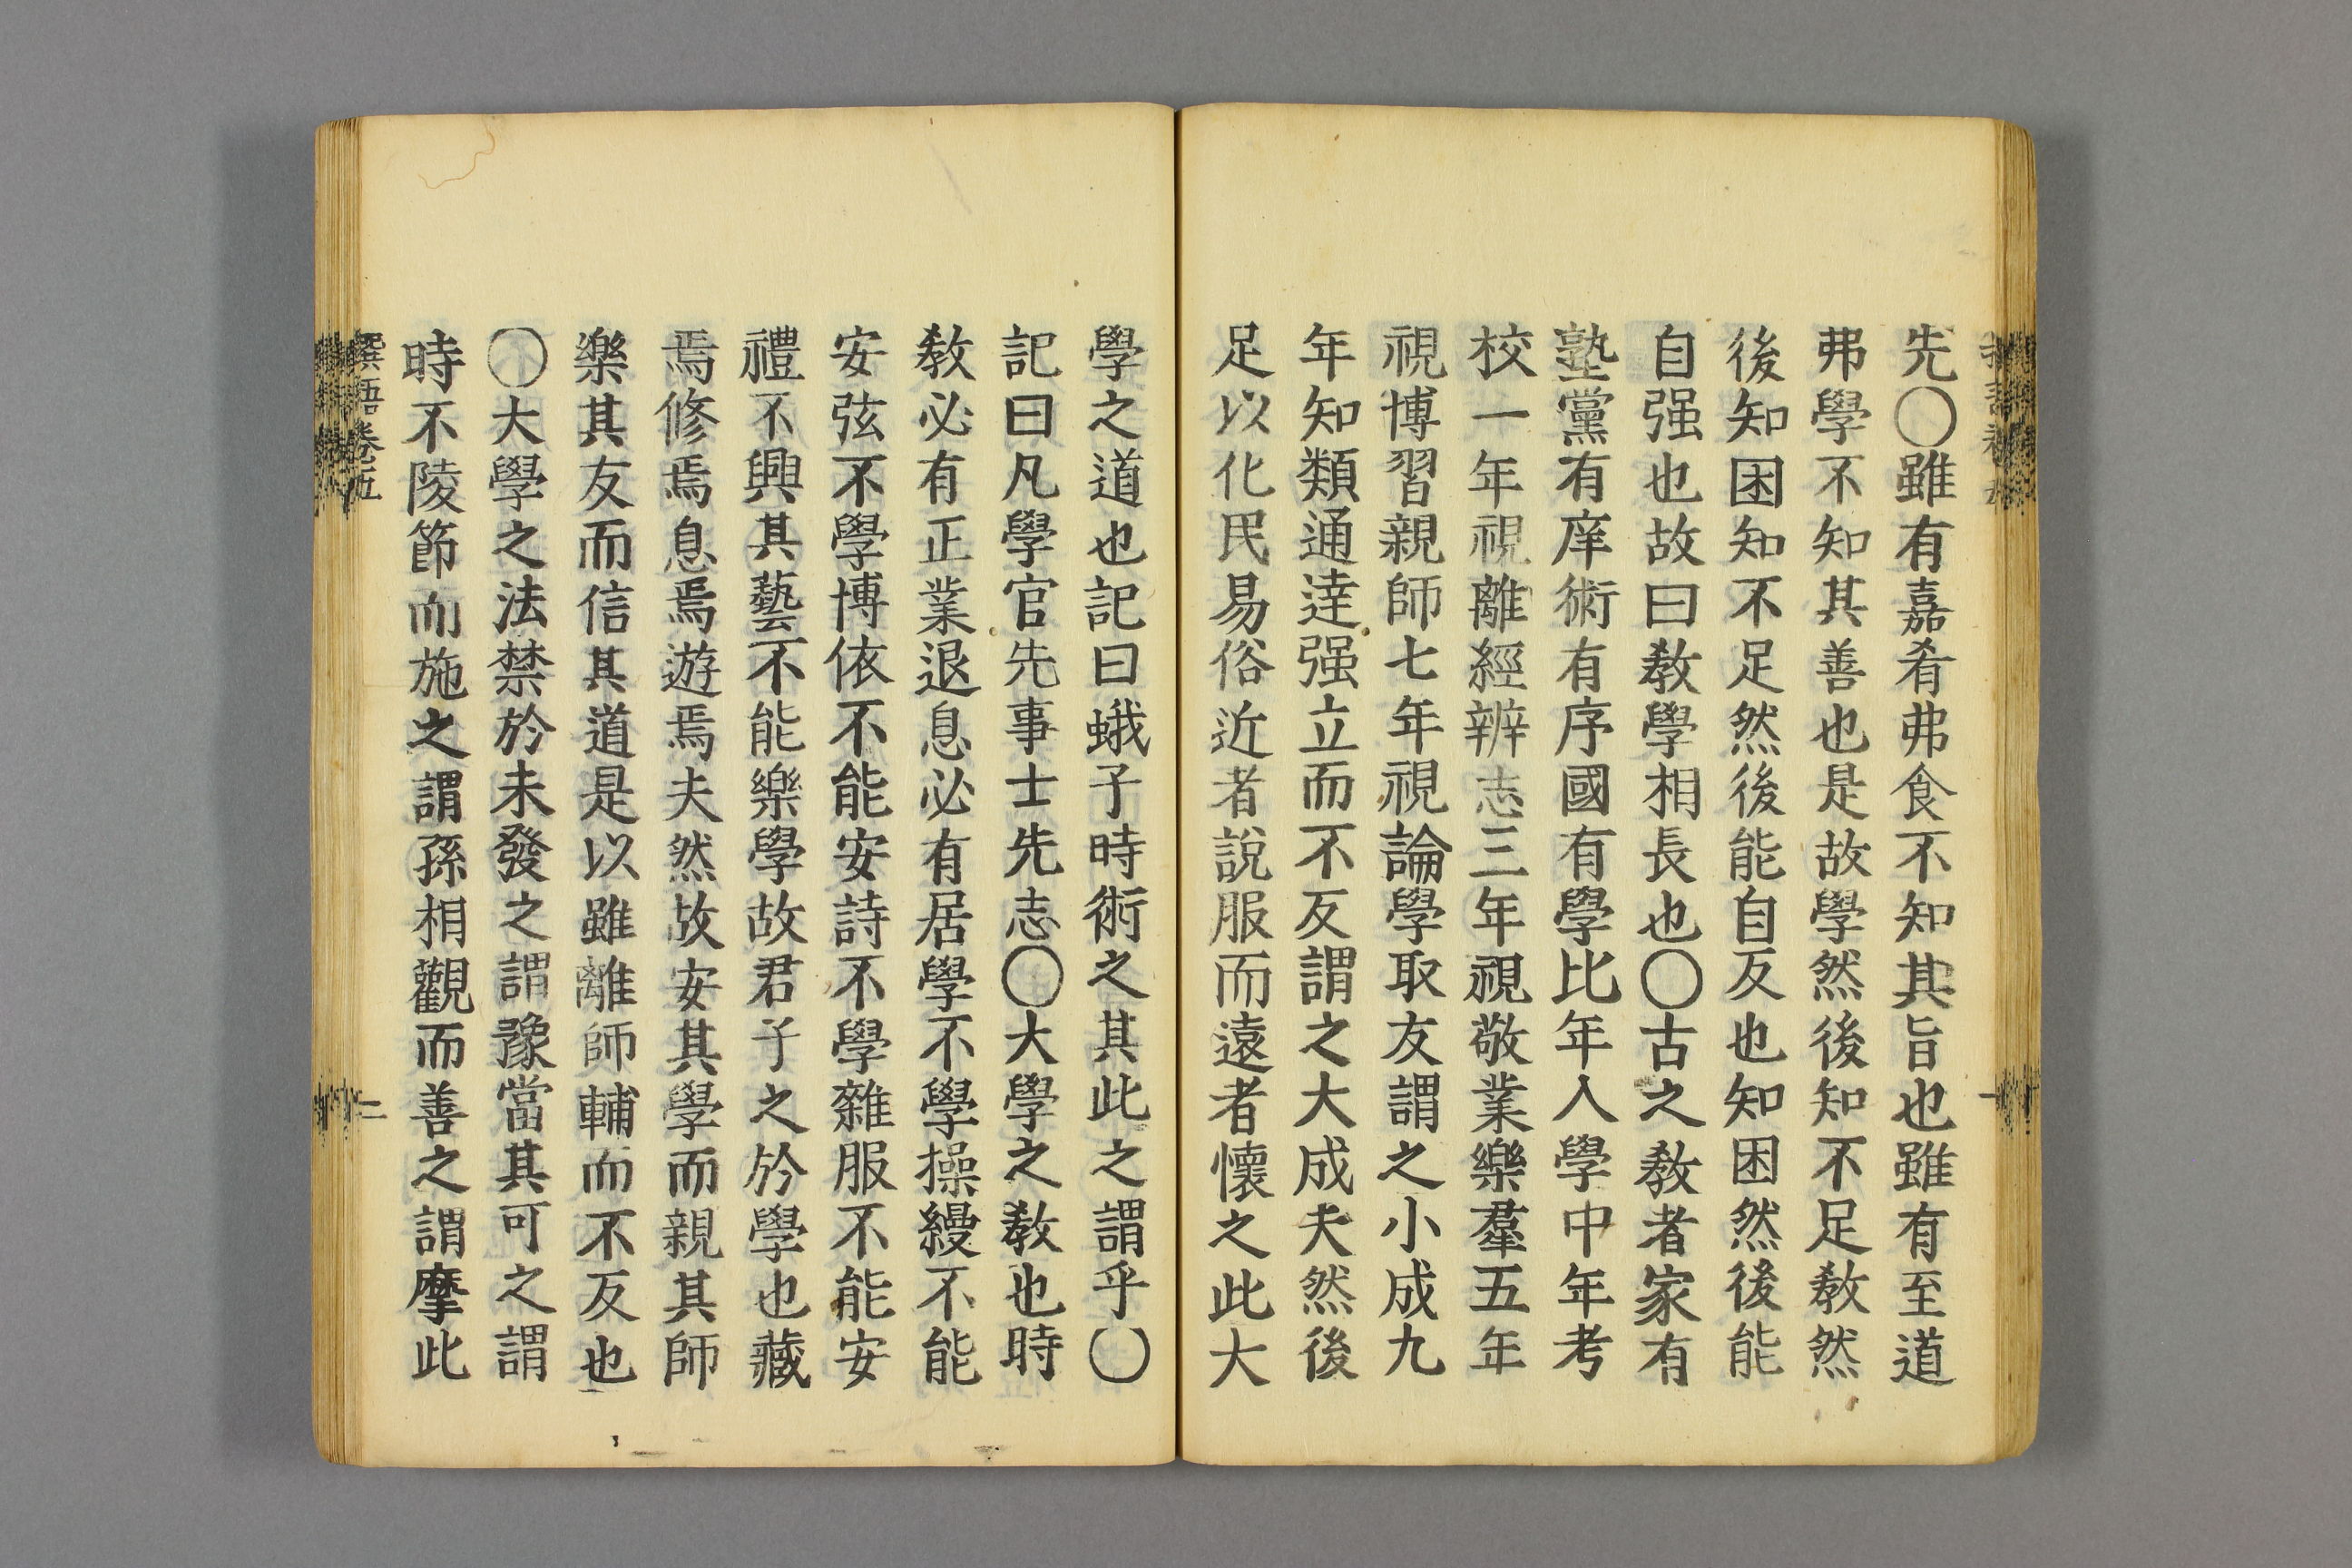 先〇雖有嘉肴弗食不知其旨也雖有至道
弗學不知其善也是故學然後知不足教然
後知困知不足然後能自反也知困然後能
自强也故曰教學相長也〇古之教者家有
塾黨有庠術有序國有學比年入學中年考
校一年視離經辨志三年視敬業樂羣五年
視博習親師七年視論學取友謂之小成九
年知類通達强立而不反謂之大成夫然後
足以化民易俗近者說服而遠者懷之此大
學之道也記曰蛾子時術之其此之謂乎〇
記曰凡學官先事士先志〇大學之教也時
教必有正業退息必有居學不學操縵不能
安弦不學博依不能安詩不學雜服不能安
禮不興其藝不能樂學故君子之於學也藏
焉修焉息焉遊焉夫然故安其學而親其師
樂其友而信其道是以雖離師輔而不反也
〇大學之法禁於未發之謂豫當其可之謂
時不陵節而施之謂孫相觀而善之謂摩此
撰語卷五
二